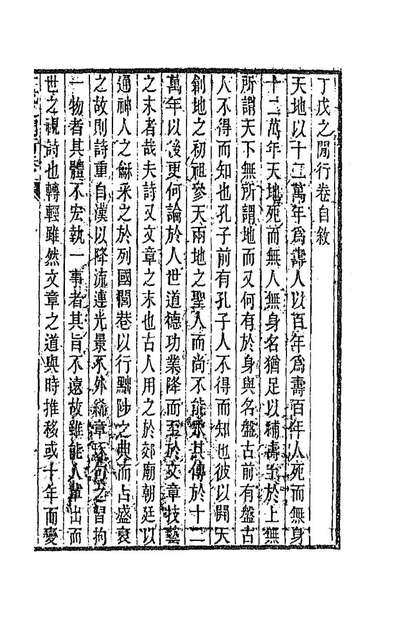 丁戊之閒行卷自敘
天地以十二萬年爲壽人以百年爲壽百年人死而無身
十二萬年天地死而無人身名猶足以補壽至於上無
所謂天下無所謂地而又何有於身與名盤古前有盤古
人不得而知也孔子前有孔子人不得而知也彼以開天
創地之初祖參天兩地之聖人而尚不能永其傳於十二
萬年以後更何論於人世道德功業降而至於文章技藝
之末者哉夫詩又文章之末也古人用之於郊廟朝廷以
通神人之龢采之於列國閭巷以行黜陟之典而占盛衰
之故則詩重自漢以降流連光景不外絺章琢句之習拘
一物者其體不宏執一事者其旨不遠故雖能人輩出而
世之視詩也轉輕雖然文章之道與時推移或十年而變